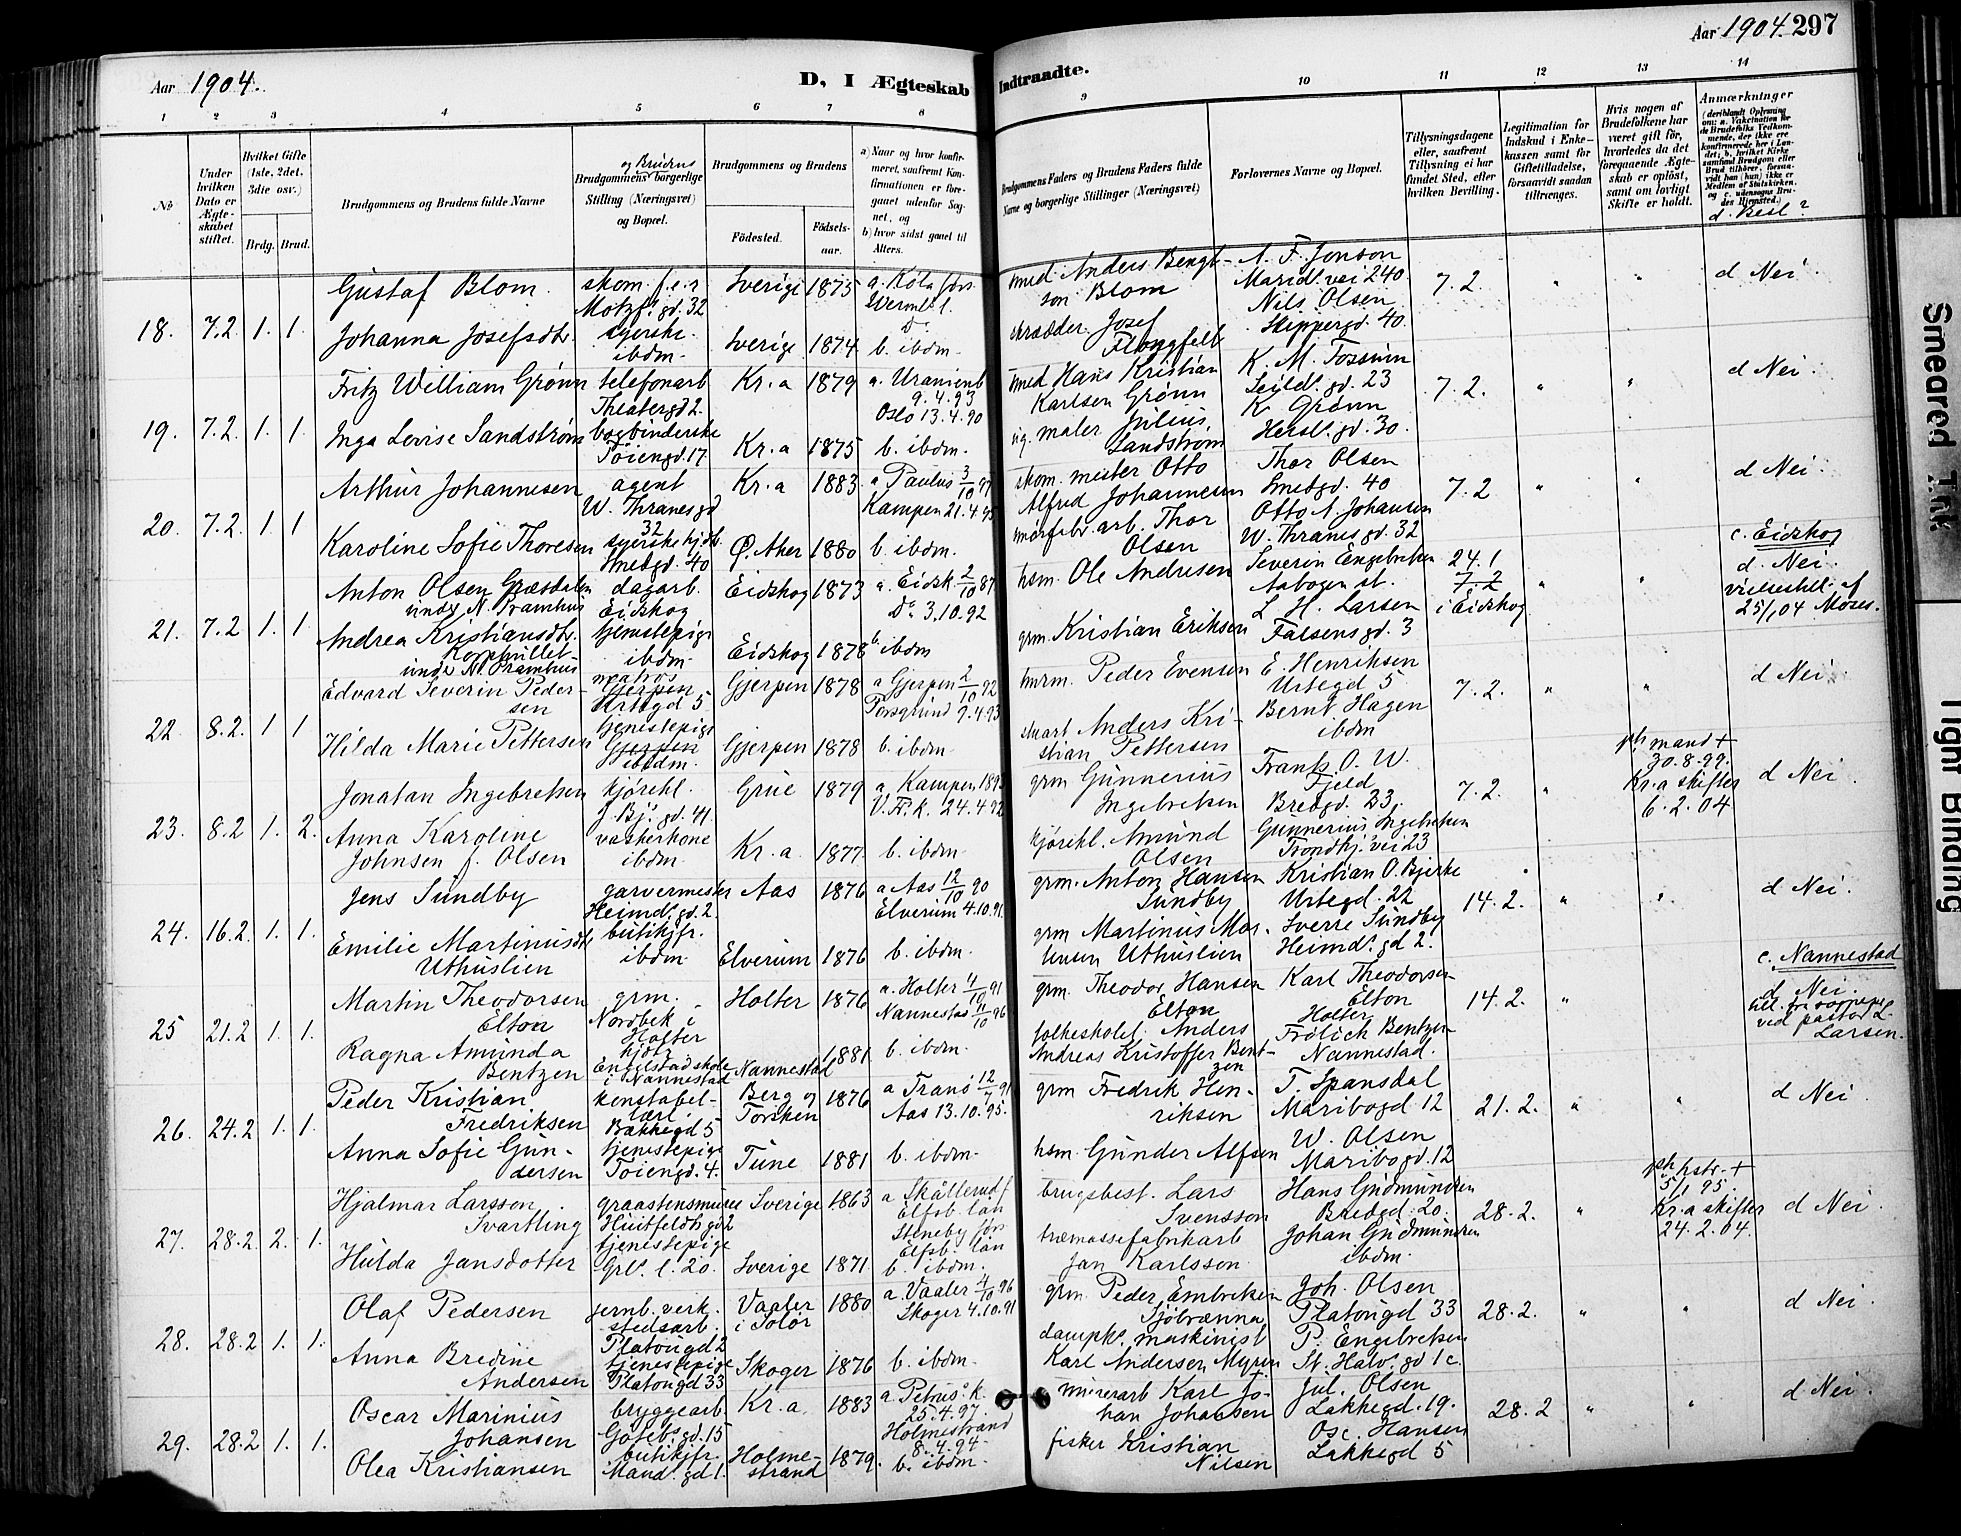 Aar 1904.
D, I Ægteskab Indtraadte.
Aar 1904. 297
1 2 3 4 5 6 7 8 9 10 11 12 13 14
No
Under hvilken Dato er Ægteskabet stiftet.
Hvilket Gifte (1ste, 2det, 3die osv.)
Brdg. Brud.
Brudgommens og Brudens fulde Navne
og Brudens
Brudgommens borgerlige Stilling (Næringsvei) og Bopæl.
Brudgommens og Brudens
Fødested. Fødselsaar.
a) Naar og hvor konfirmeret, saafremt Konfirmationen er foregaaet udenfor Sognet, og
b) hvor sidst gaaet til Alters.
Brudgommens Faders og Brudens Faders fulde Navne og borgerlige Stillinger (Næringsvei)
Forlovernes Navne og Bopæl.
Tillysningsdagene eller, saafremt Tillysning ei har fundet Sted, efter hvilken Bevilling.
Legitimation for Indskud i Enkekassen samt for Giftetilladelse, forsaavidt saadan tiltrænges.
Hvis nogen af Brudefolkene har været gift før, hvorledes da det foregaaende Ægteskab er opløst, samt om lovligt Skifte er holdt.
Anmærkninger
d. Besl?
18. 7.2. 1. 1.
Gustaf Blom. skom. f.e.r Motzf. gd. 32 Sverige 1875 a. Köla förs. Vermel.
smed Anders Bengtson Blom A. F. Jonson Marid. vei 240 7.2. " " d Nei.
Johanna Josefsdtr. syerske ibdm. Sverige 1874 do b. ibdm.
skrædder Josef Nils Olsen Skippergd. 40.
19. 7.2. 1. 1.
Fritz William Grönn telefonarb Theatergd 2. Kr.a 1879 a. Uranienb 9.4.93
smed Hans Kristian Karlsen Grönn K. M. Fossum Seild. gd. 23 7.2. " " d Nei.
Inga Lovise Sandström bogbinderske Töiengd. 17 Kr.a 1875 Oslo 13.4.90 b. ibdm.
sig. maler Julius Sandström K Grönn Hersl. gd. 30.
20. 7.2. 1. 1
Arthur Johannesen agent W. Thranesgd 32 Kr.a 1883 a Paulus 3/10 97
skom. mester Otto Alfred Johannesen Thor Olsen Smedgd. 40 7.2 " " d Nei.
Karoline Sofie Thoresen Smedgd. 40 Ø. Aker 1880 Kampen 21.4.95 b. ibdm.
Thor Olsen Otto A. Johansen W. Thranesgd. 32
21. 7.2 1. 1
Anton Olsen Græsdalen under N. Pramhus dagarb. Eidskog Eidskog 1873 a. Eidsk. 2/10 87
hsm. Ole Andresen Severin Engebretsen Aabogen st. 24.1 7.2 i Eidskog " " c. Eidskog d. Nei. vielsestil. af 25/1 04 Moses.
Andrea Kristiansdtr. under N. Pramhus tjenestepige ibdm Eidskog 1878 Do 3.10.92 b. ibdm
grm. Kristian Eriksen L. H. Larsen Falsensgd. 3
22. 8.2. 1 1
Edvard Severin Pedersen matros Gjerpen Urtegd 5 Gjerpen 1878 a Gjerpen 2/10 92
hmrm. Peder Evensen E. Henriksen Urtegd 5 7.2. " " d Nei.
Hilda Marie Pettersen tjenestepige Gjerpen ibdm. Gjerpen 1878 Porsgrund 9.4.93 b. ibdm
Anders Kristian Pettersen Bernt Hagen ibdm
23. 8.2 1. 2.
Jonatan Ingebretsen kjörekl. J. Bj. gd. 41. Grue 1879 a. Kampen 1893
grm Gunnerius Ingebretsen Frants O. W. Fjeld Bredgd. 23. 7.2. " mand + 30.8.99. Kr.a skifter 6.2.04 d Nei.
Anna Karoline Johnsen f. Olsen vaskerkone ibdm Kr.a. 1877. V.Ak. 24.4.92 b. ibdm
kjörekl. Amund Olsen Gunnerius Ingebretsen Trondhj. vei 23
24. 16.2. 1. 1.
Jens Sundby garvermester Heimd. gd. 2. Aas 1876 a Aas 12/10 90
grm. Anton Hansen Sundby Kristian O. Bjerke Urtegd. 22 14.2. " " d Nei.
Emilie Martinusdtr Uthuslien butikjfr. ibdm Elverum 1876 Elverum 4.10.91. b. ibdm.
grm Martinius Mortensen Uthuslien Sverre Sundby Heimd. gd 2.
25 21.2 1. 1.
Martin Theodorsen Elton grm. Nordbek i Holter Holter 1876 a. Holter 4/10 91
grm. Theodor Hansen Elton Karl Theodorsen Elton Holter 14.2. " c. Nannestad d. Nei. ved pastor L. Larsen.
Ragna Amunda Bentzen Engelstad skole i Nannestad Nannestad 1881 Nannestad 11/10 96 b. ibdm.
folkeskolel. Anders Andreas Kristoffer Bentzen Frölich Bentzen Nannestad.
26. 24.2 1. 1.
Peder Kristian Fredriksen konstabellærl. Bakkegd 5 Berg og Torsken 1876 a Tranö 12/7 91
grm Fredrik Henriksen T. Spansdal Maribogd 12 21.2. " " d Nei.
Anna Sofie Gundersen tjenestepige Töiengd. 4. Tune 1881 Aas 13.10.95. b. ibdm.
hsm. Gunder Alfsen W. Olsen Maribogd. 12
27. 28.2. 2. 1.
Hjalmar Larsson Svartling graastensmurer Huitfeldtsgd 2 Sverige 1863 a Skållerud f. Elfsb. län
brugsbest. Lars Svensson Hans Gudmundsen Bredgd. 20. 28.2. " hstr. + 5/1 95. Kr.a skifter 24.2.04. d Nei.
Hulda Jansdotter tjenestepige Grl. l. 20. Sverige 1871 Steneby för Elfsb. län b. ibdm.
træmassefabrikarb Jan Karlsson Johan Gudmundsen ibdm.
28. 28.2 1. 1.
Olaf Pedersen jernb. verkstedsarb. Platougd 2 Vaaler i Solör 1880 a. Vaaler 4/10 96
grm. Peder Embretsen Sjöbrænna Joh. Olsen Platougd 33 28.2. " " d Nei.
Anna Bredine Andersen tjenestepige Platougd 33 Skoger 1876 Skoger 4.10.91 b. ibdm.
dampsk. maskinist Karl Andersen Myren P. Engebretsen St. Halv. gd 1c.
29. 28.2 1. 1.
Oscar Marinius Johansen bryggearb Götebsgd. 15 Kr.a. 1883 a Petrus. k. 25.4.97.
murerarb Karl Johan Johansen Jul. Olsen Lakkegd. 19. 28.2 " " d Nei.
Olea Kristiansen butikjfr. Mand. gd 1. Holmestrand 1879. Holmestrand 8.4.94 b. ibdm.
fisker Kristian Nilsen Osc. Hansen Lakkegd 5
Smeared Ink
Tight Binding